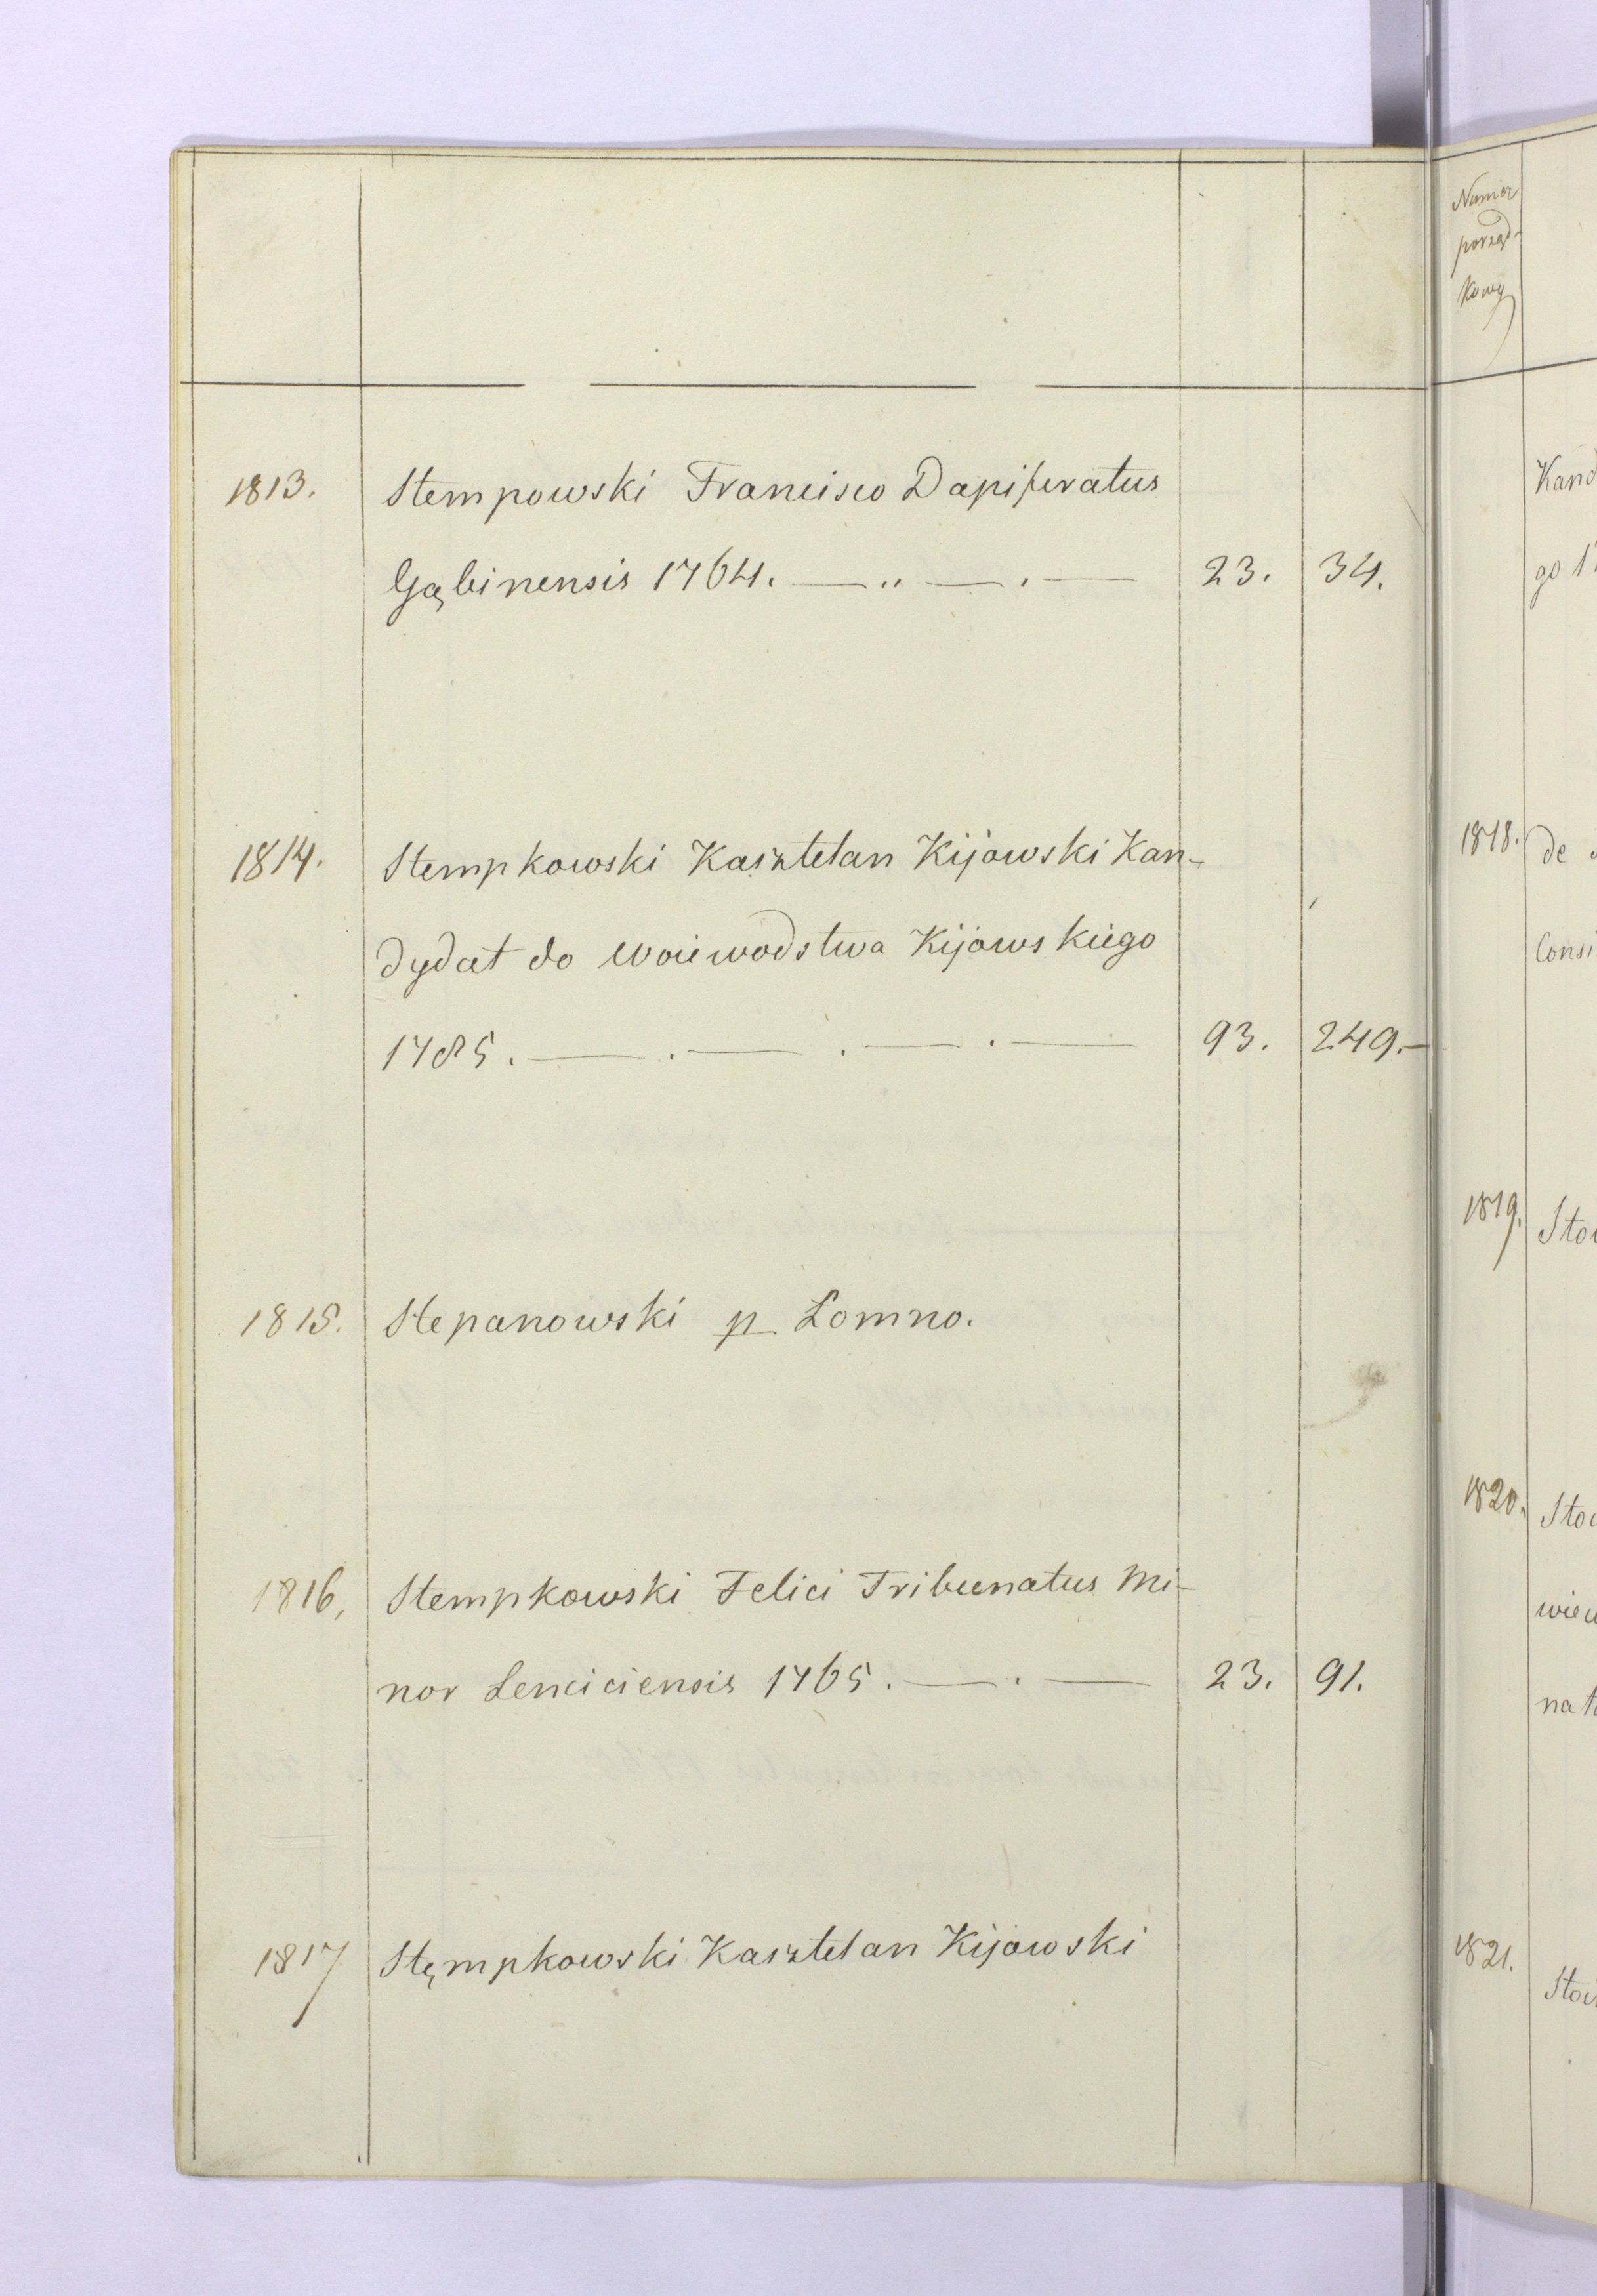 1813. Stempowski Francisco Dapiferatus
Gąbinensis 1764. — „ — . — 23. 34.
1814. Stempkowski Kasztelan Kijowski Kan-
dydat do Woiewodstwa Kijowskiego
1785. — . — . — . — 93. 249.—
1815. Stepanowski p Łomno.
1816, Stempkowski Felici Tribunatus Mi-
nor Lenciciensis 1765. — . — 23. 91.
1817 Stęmpkowski Kasztelan Kijowski
Numer
porząd-
kowy
Kand
go 1
1818. de
Consi
1819. Sto
1820. Sto
wie
nat
1821. Sto